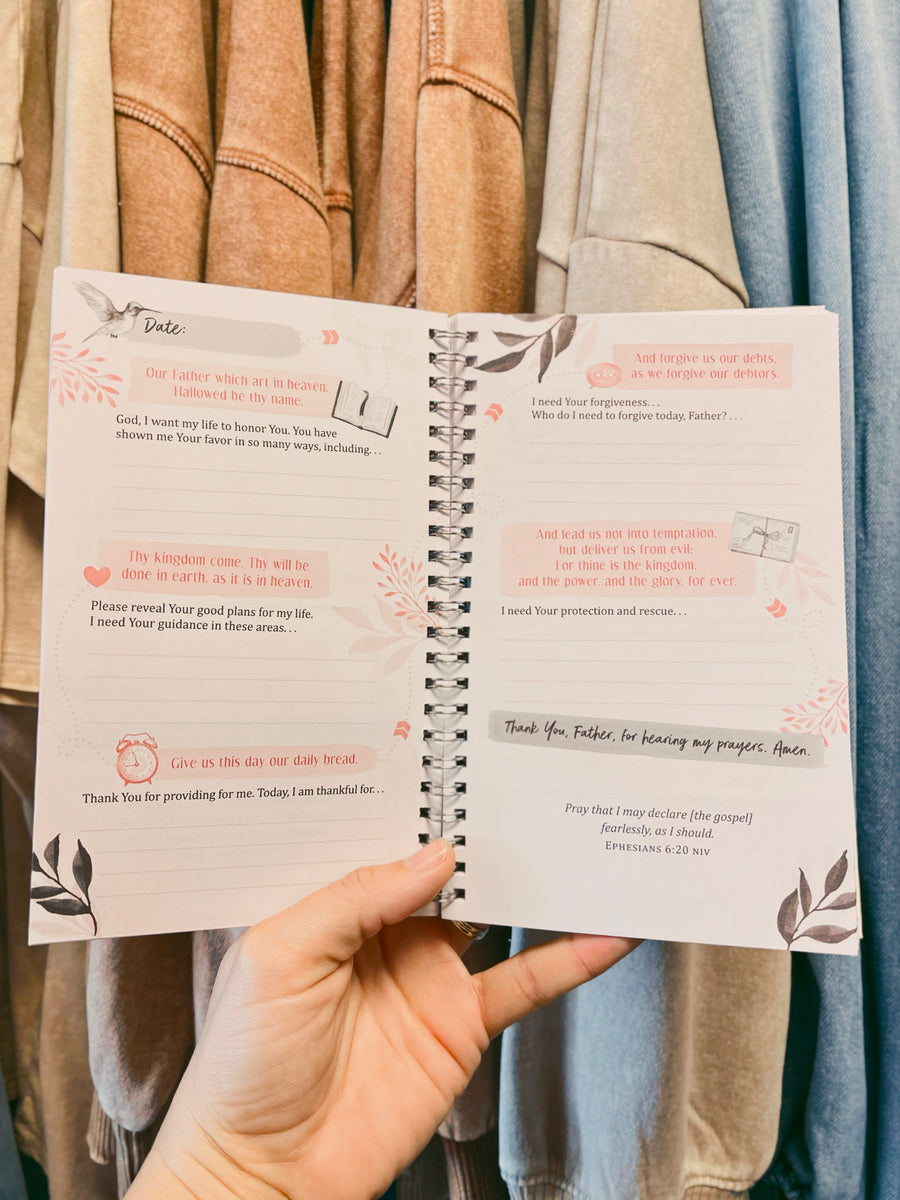 Date:
Our Father which art in heaven,
Hallowed be thy name.
God, I want my life to honor You. You have
shown me Your favor in so many ways, including. . .
Thy kingdom come. Thy will be
done in earth, as it is in heaven.
Please reveal Your good plans for my life.
I need Your guidance in these areas. . .
Give us this day our daily bread.
Thank You for providing for me. Today, I am thankful for. . .
And forgive us our debts,
as we forgive our debtors.
I need Your forgiveness. . .
Who do I need to forgive today, Father? . . .
And lead us not into temptation,
but deliver us from evil:
For thine is the kingdom,
and the power, and the glory, for ever.
I need Your protection and rescue. . .
Thank You, Father, for hearing my prayers. Amen.
Pray that I may declare [the gospel]
fearlessly, as I should.
Ephesians 6:20 NIV